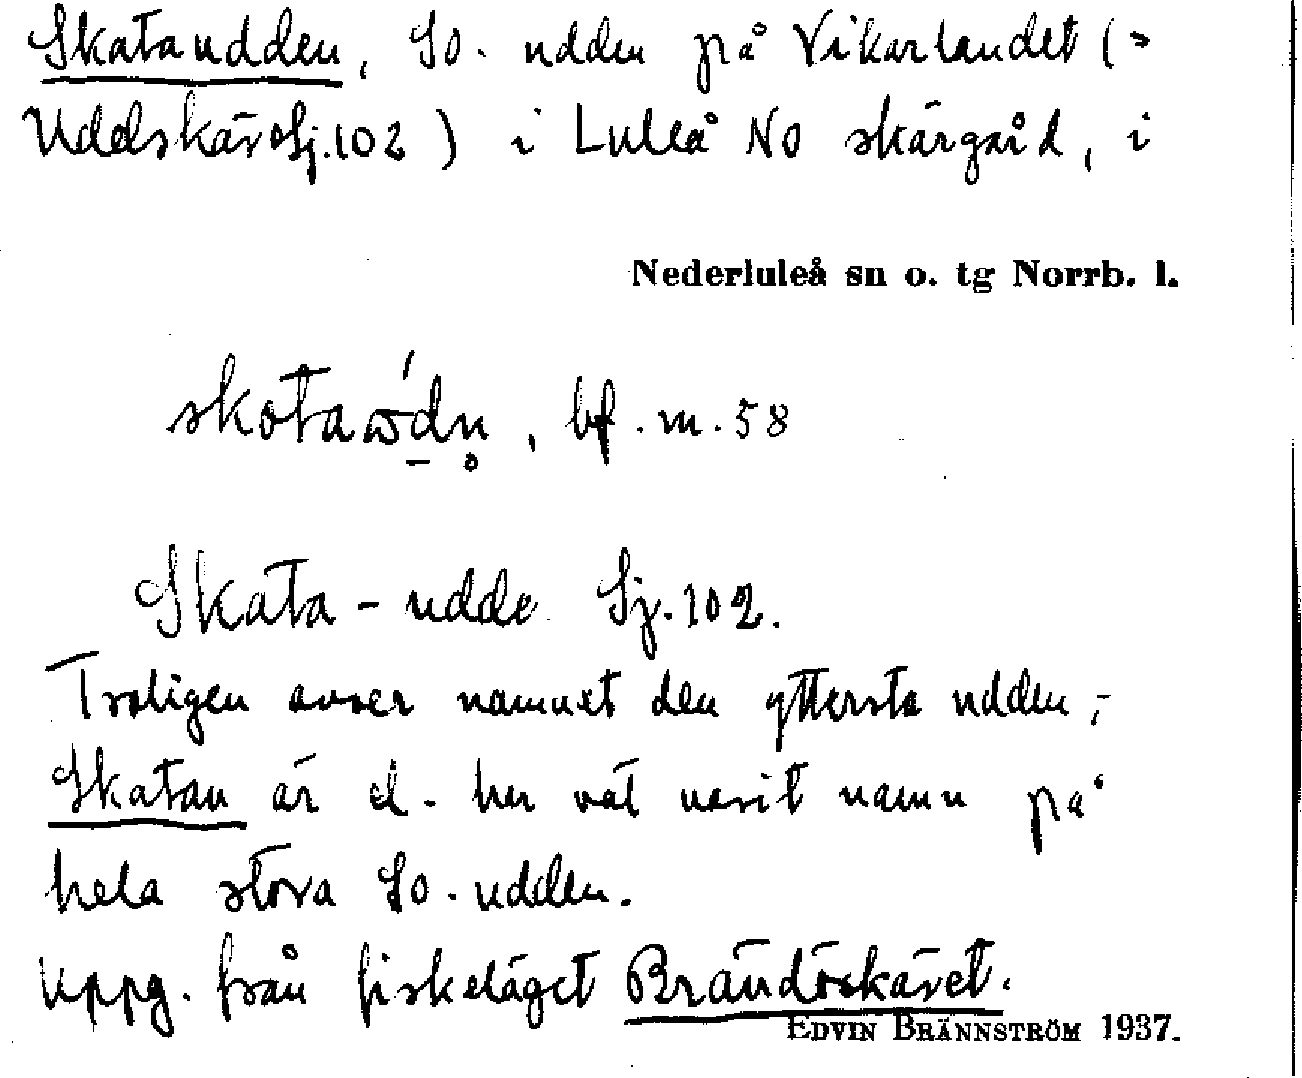 Skataudden, SO. udden på Vikarlandet (=
Uddskär Sj.102) i Luleå NO skärgård, i
Nederluleå sn o. tg Norrb. l.
bf. m. 58
Skata-udde Sj.102.
Troligen avser namnet den yttersta udden,-
Skatan är el. har väl varit namn på
hela stora SO.-udden.
Uppg. från fiskeläget Brändöskäret.
EDVIN BRÄNNSTRÖM 1937.